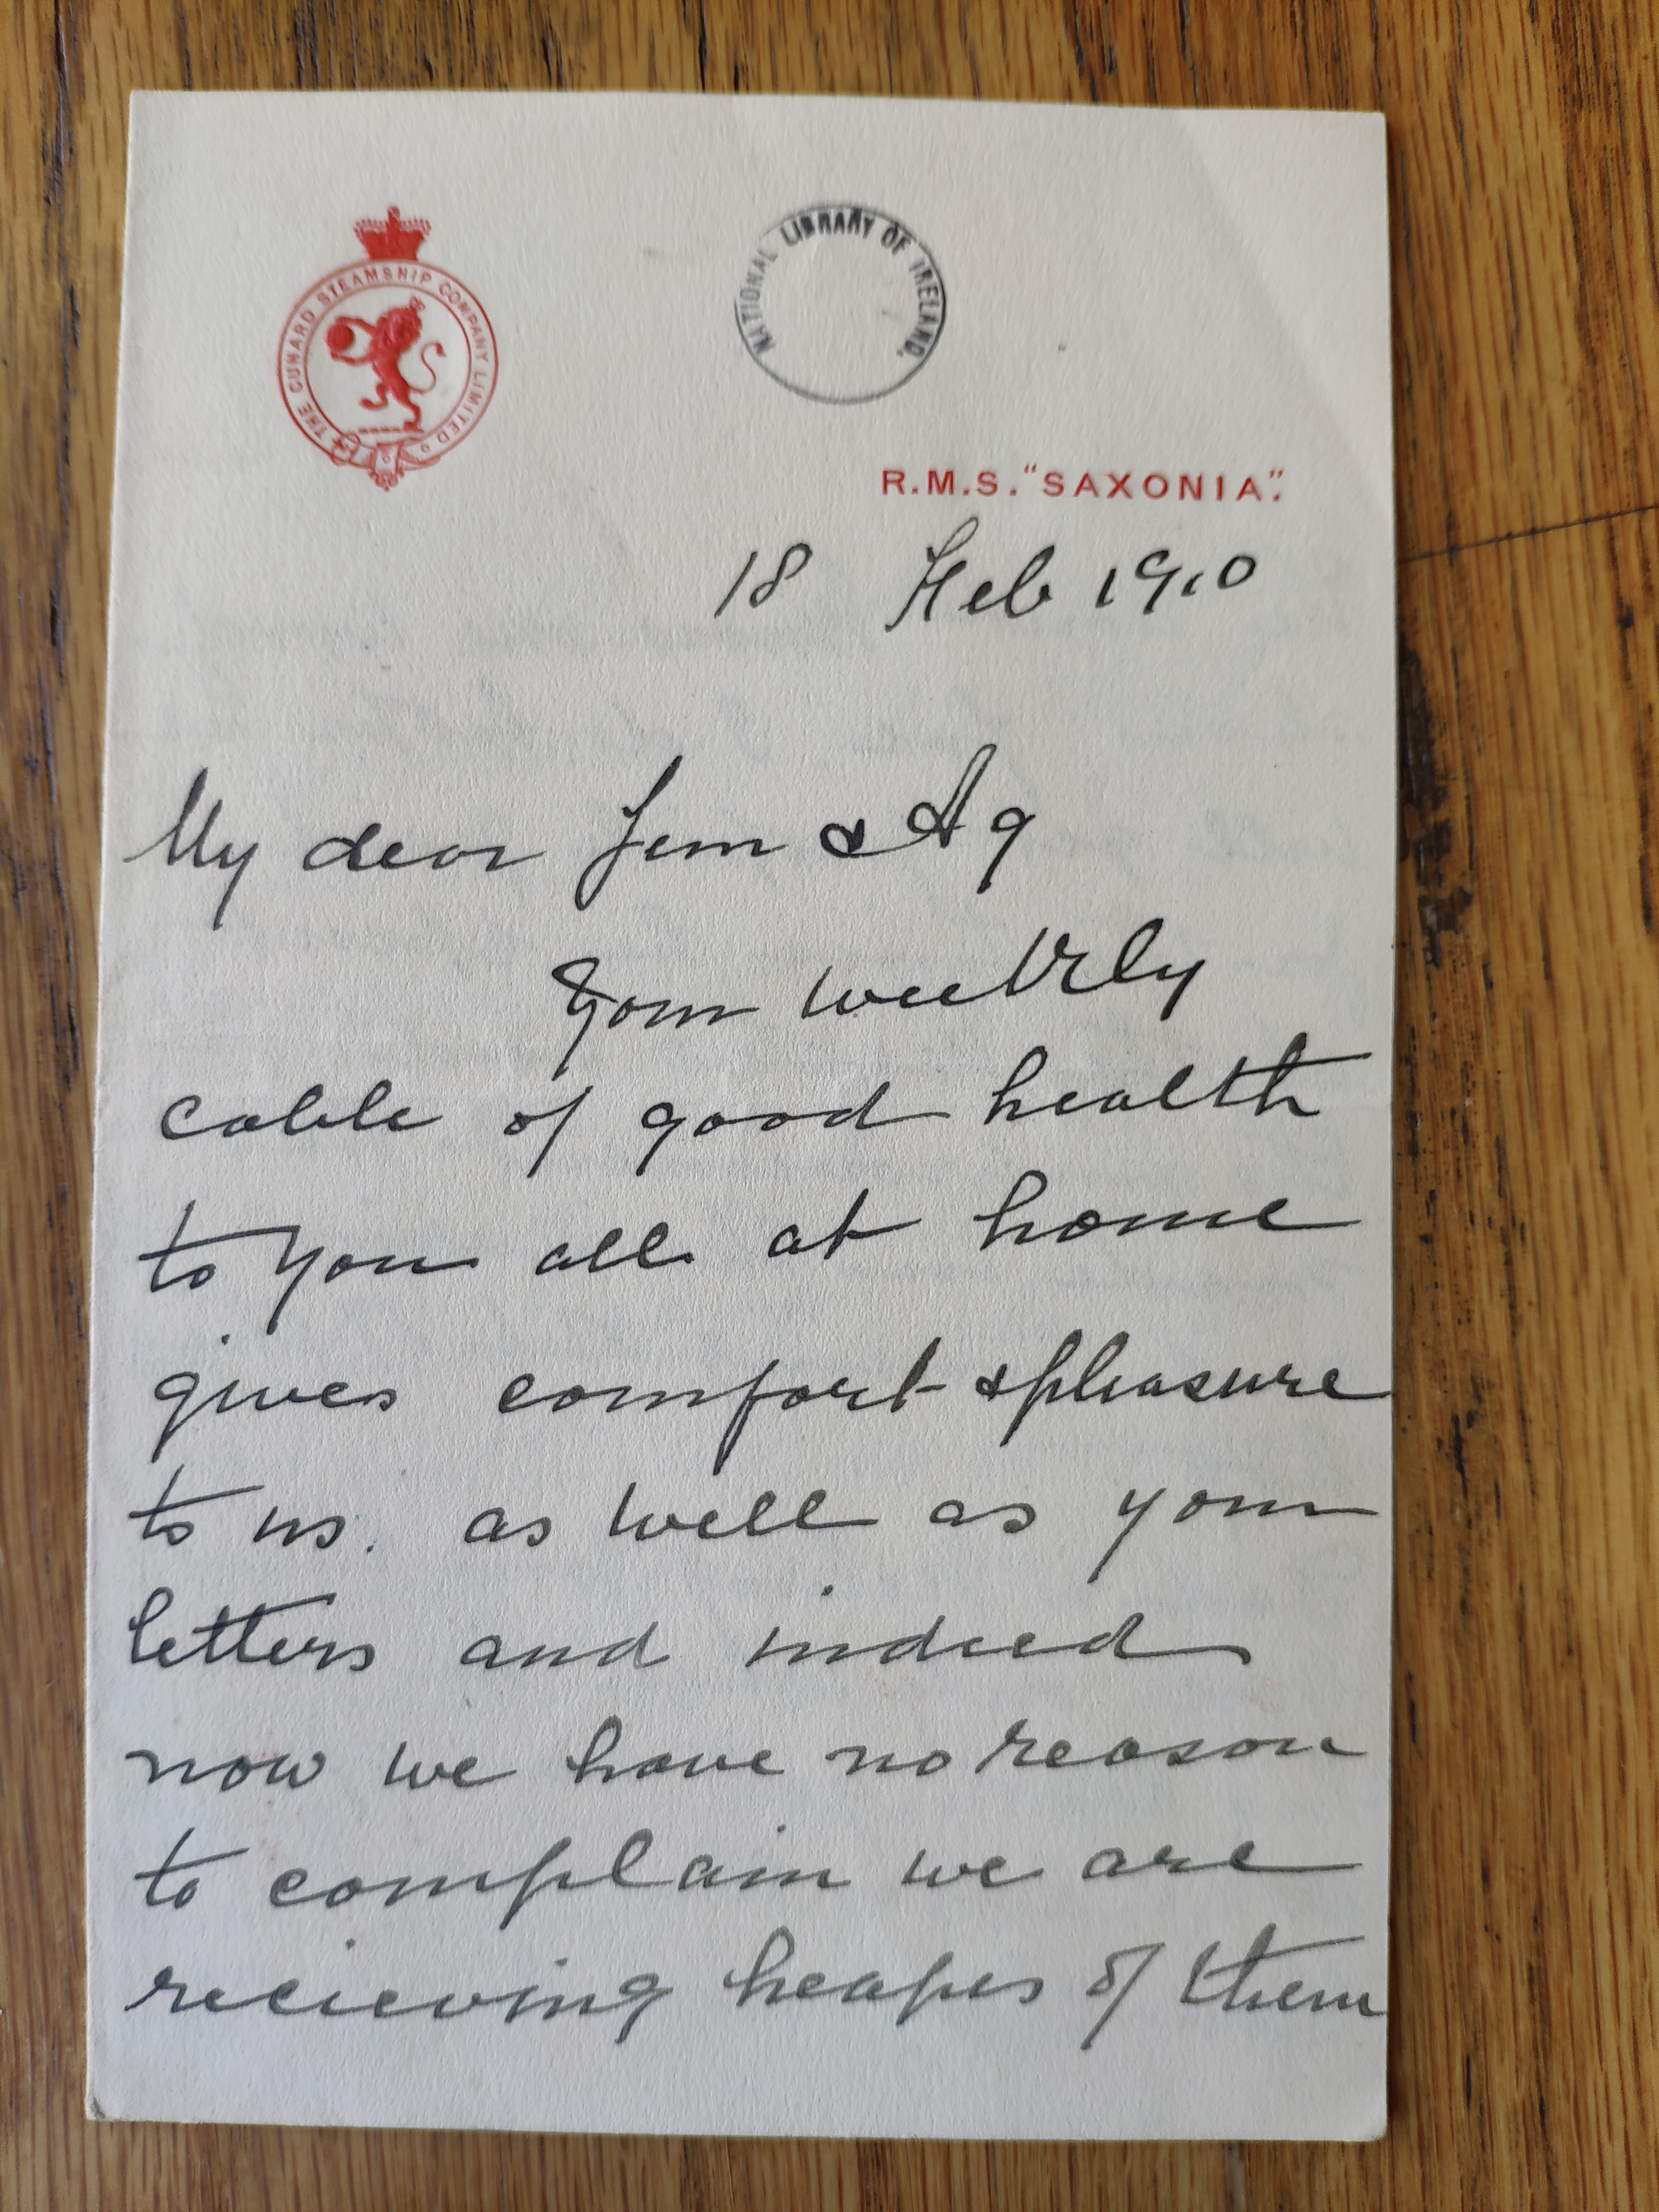 THE CUNARD STEAMSHIP COMPANY LIMITED
NATIONAL LIBRARY OF IRELAND.
R.M.S. "SAXONIA".
18 Feb 1910
My dear Jem & Ag
Your weekly
cable of good health
to you all at home
gives comfort & pleasure
to us. as well as your
letters and indeed
now we have no reason
to complain we are
recieving heapes of them